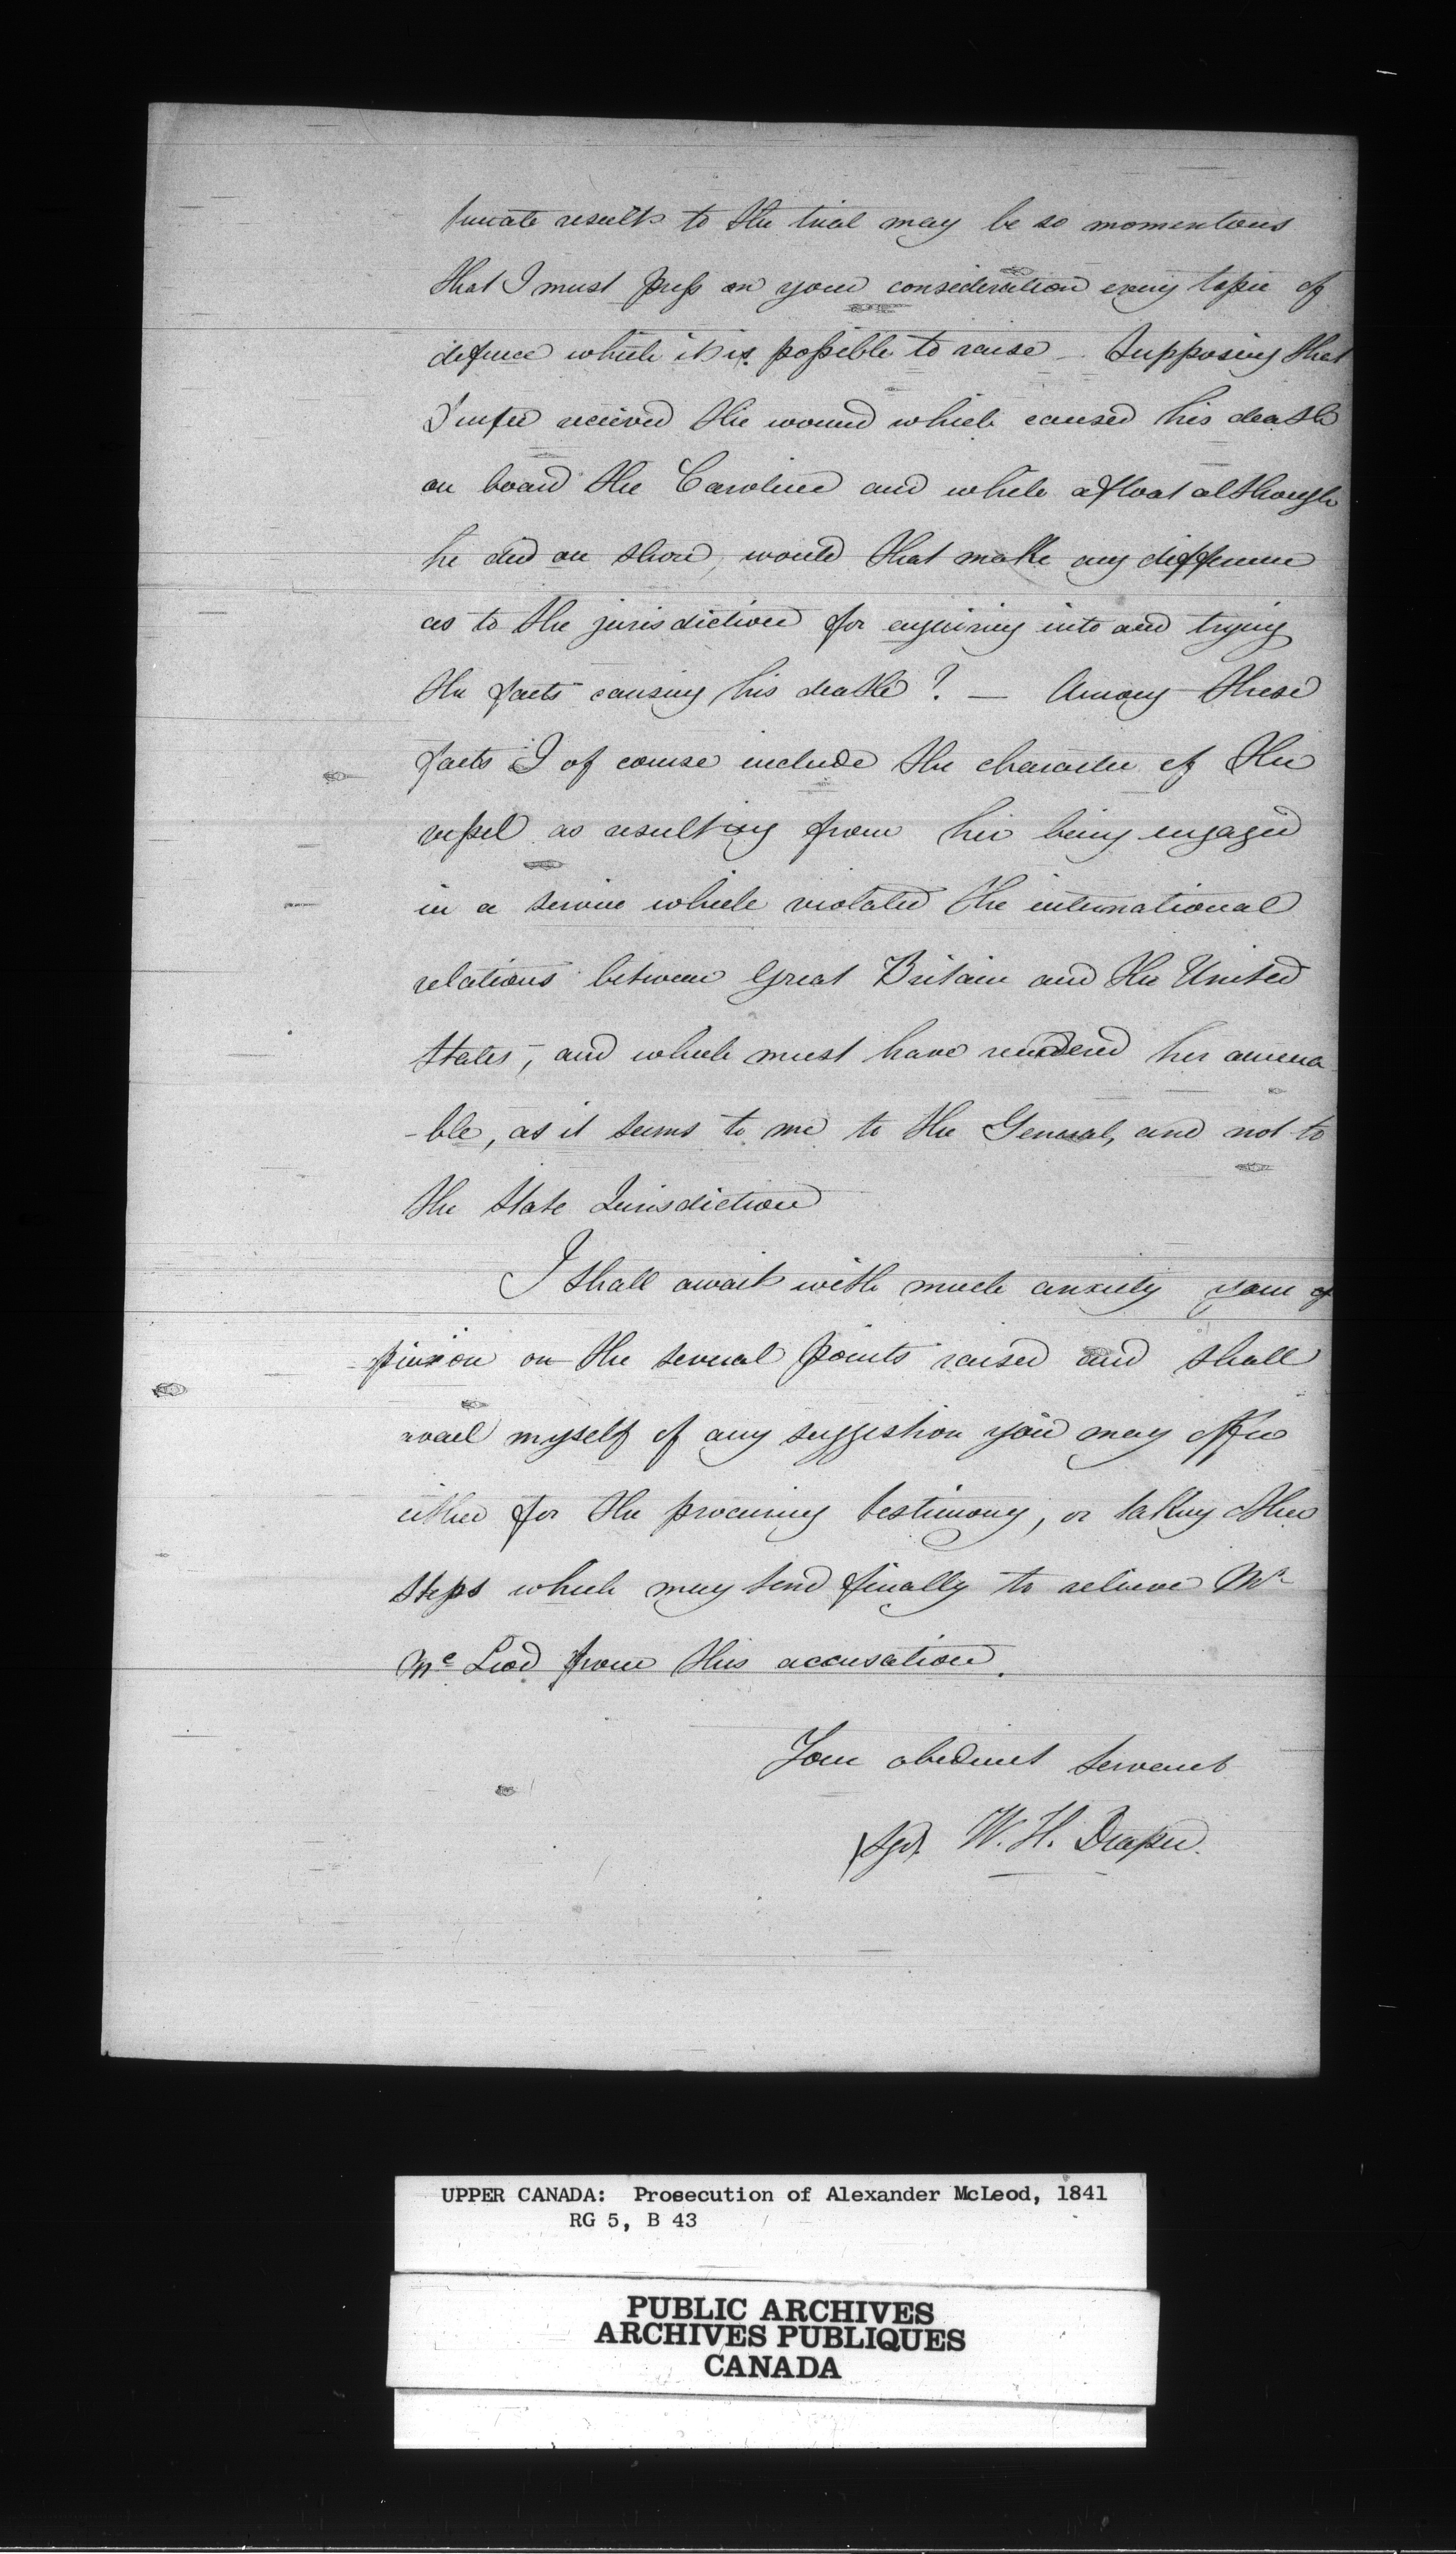 tunate results to the trial may be so momentous
that I must press on your consideration every topic of
defence which it is possible to raise – Supposing that
Durfee received the wound which caused his death
on board the Caroline and while afloat although
he died on shore, would that make any difference
as to the jurisdiction for enquiring into and trying
the facts causing his death? — Among these
facts I of course include the character of the
vessel as resulting from her being engaged
in a service which violated the international
relations between Great Britain and the United
States, and which must have rendered her amena
-ble, as it seems to me to the General, and not to
the State Jurisdiction
I shall await with much anxiety your o
-pinion on the several points raised and shall
avail myself of any suggestion you may offer
either for the procuring testimony, or taking other
steps which may tend finally to relieve Mr
McLeod from this accusation.
Your obedient servant
Sgd. W. H. Draper.
UPPER CANADA: Prosecution of Alexander McLeod, 1841
RG 5, B 43
PUBLIC ARCHIVES
ARCHIVES PUBLIQUES
CANADA